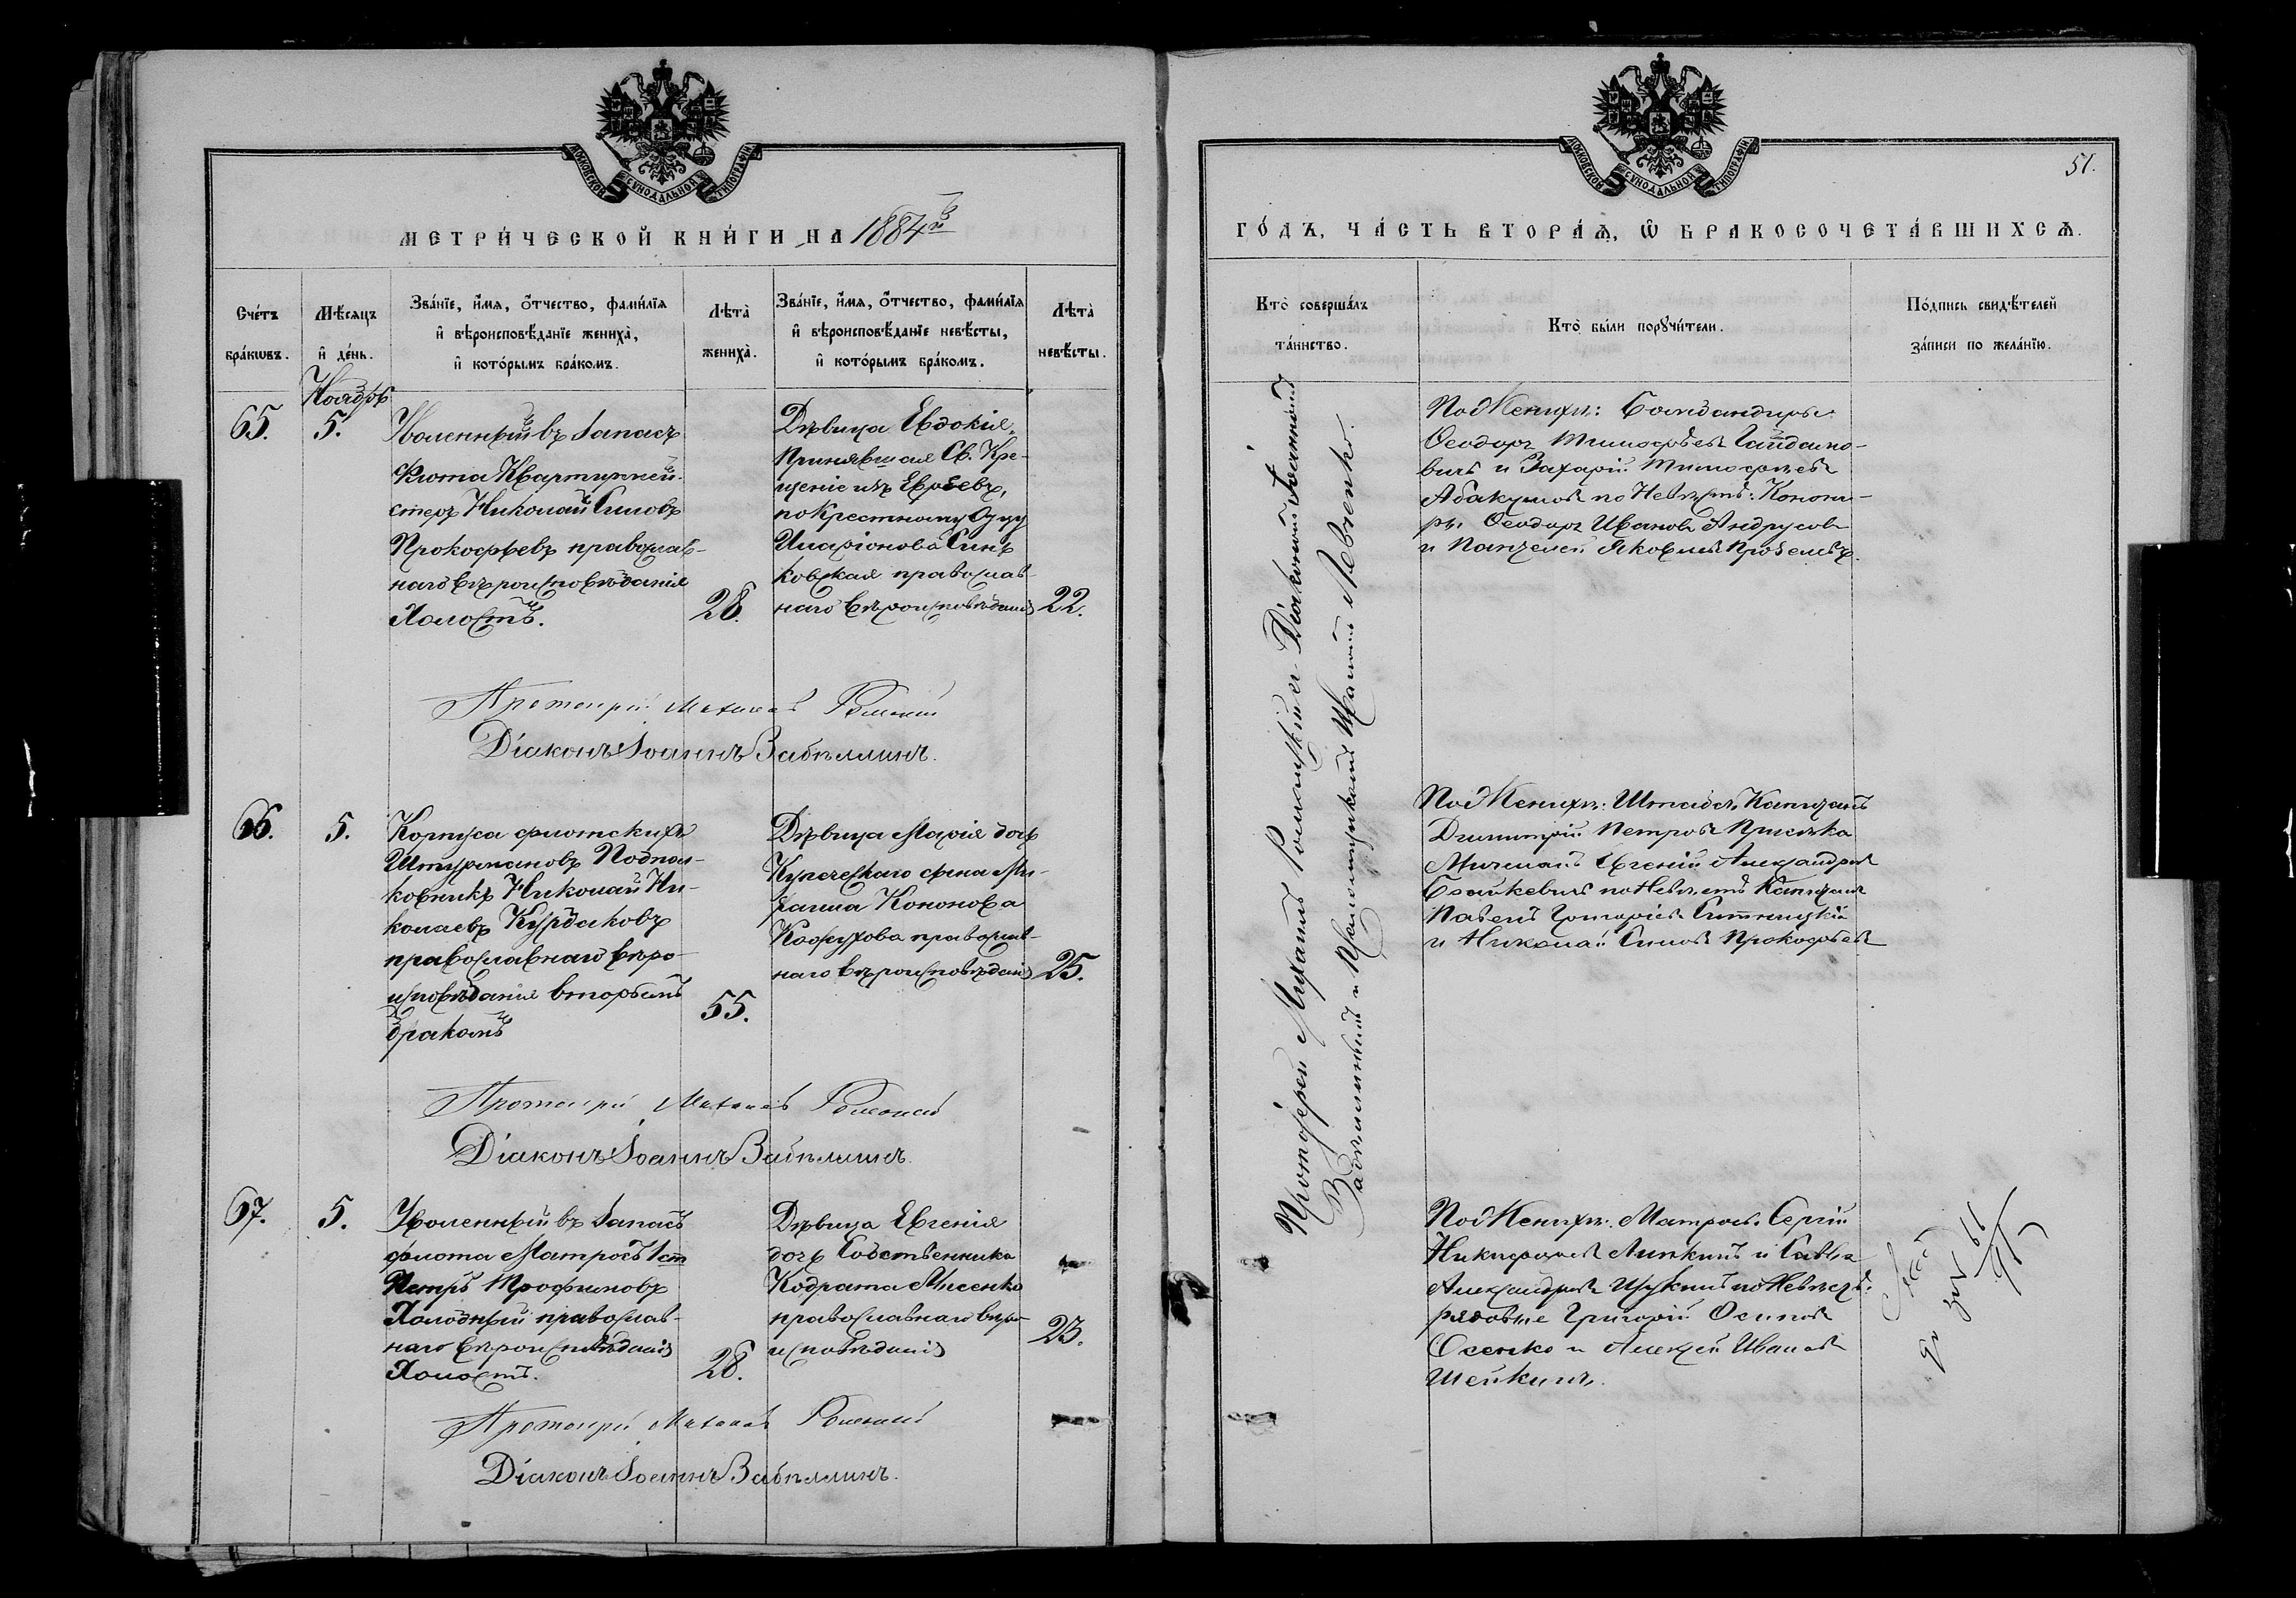 МОСКОВСКОЙ СѴНОДАЛЬНОЙ ТИПОГРАФІИ
МЕТРИ́ЧЕСКОЙ КНИ́ГИ НА 1884й
Сче́тъ бра́кѡвъ.
Мѣ́сяцъ и҆ де́нь.
Зва́нїе, и҆́мѧ, ѻ҆́тчество, фами́лїѧ
и҆ вѣроисповѣ́данїе жениха̀,
и҆ кото́рымъ бра́комъ.
Лѣта̀ жениха̀.
Зва́нїе, и҆́мѧ, ѻ҆́тчество, фами́лїѧ
и҆ вѣроисповѣ́данїе невѣ́сты,
и҆ кото́рымъ бра́комъ.
Лѣта̀ невѣ́сты.
Ноября
65.
5.
Уволенный въ запасъ
Флота Квартирмей-
стеръ Николай Симовъ
Прокофьевъ православ-
наго вѣроисповѣданія
Холостъ.
28.
Дѣвица Евдокія,
принявшая Св. Кре-
щеніе изъ Евреевъ,
по крестному Отцу
Иларіонова Синь
ковская православ-
наго вѣроисповѣданія
22.
Протоіерей Михаилъ Роменскій
Діаконъ Іоаннъ Забѣллинъ.
66.
5.
Корпуса флотскихъ
Штурмановъ Подпол-
ковникъ Николай Ни-
колаевъ Курдаковъ
православнаго вѣро-
исповѣданія вторымъ
бракомъ
55.
Дѣвица Марія дочь
Купеческаго сына Ми-
хаила Кононова
православ-
наго вѣроисповѣданія
25.
Протоіерей Михаилъ Роменскій
Діаконъ Іоаннъ Забѣллинъ.
67.
5.
Уволенный въ запасъ
флота Матросъ 1 ст
Петръ Трофимовъ
Холодный православ-
наго вѣроисповѣданія
Холостъ.
28.
Дѣвица Евгенія
дочь Собственника
Кодрата Мисенко
православнаго вѣро-
исповѣданія
23.
Протоіерей Михаилъ Роменскій
Діаконъ Іоаннъ Забѣллинъ.
МОСКОВСКОЙ СѴНОДАЛЬНОЙ ТИПОГРАФІИ
51.
ГО́ДЪ, ЧА́СТЬ ВТОРА́Ѧ, Ѡ҆ БРАКОСОЧЕТА́ВШИХСѦ.
Кто̀ соверша́лъ та́инство.
Кто̀ бы́ли порꙋчи́тели.
По́дпись свидѣ́телей за́писи по жела́нїю.
Протоіерей Михаилъ Роменскій съ Діакономъ Іоанномъ
Забѣллинымъ и Псаломщикомъ Иваномъ Левченко.
По Женихѣ: Бомбандиры:
Ѳеодоръ Тимофѣевъ Гайдамо-
вичъ и Захарій Тимофѣевъ
Абакумовъ по Невѣстѣ: Канони-
ры Ѳеодоръ Ивановъ Андрусовъ
и Пантелей Яковлевъ
По Женихѣ: Штабсъ Капитанъ
Димитрій Петровъ
Мичманъ Евгеній Александровъ
по Невѣстѣ Капитанъ
Павелъ Григоріевъ Ситницкій
и Николай Симовъ Прокофьевъ
По Женихѣ: Матросы Сергій
Никифоровъ Липкинъ и Савва
Александровъ Щукинъ по Невѣстѣ:
рядовые Григорій Осиповъ
Осенко и Алексѣй Ивановъ
Шейкинъ.